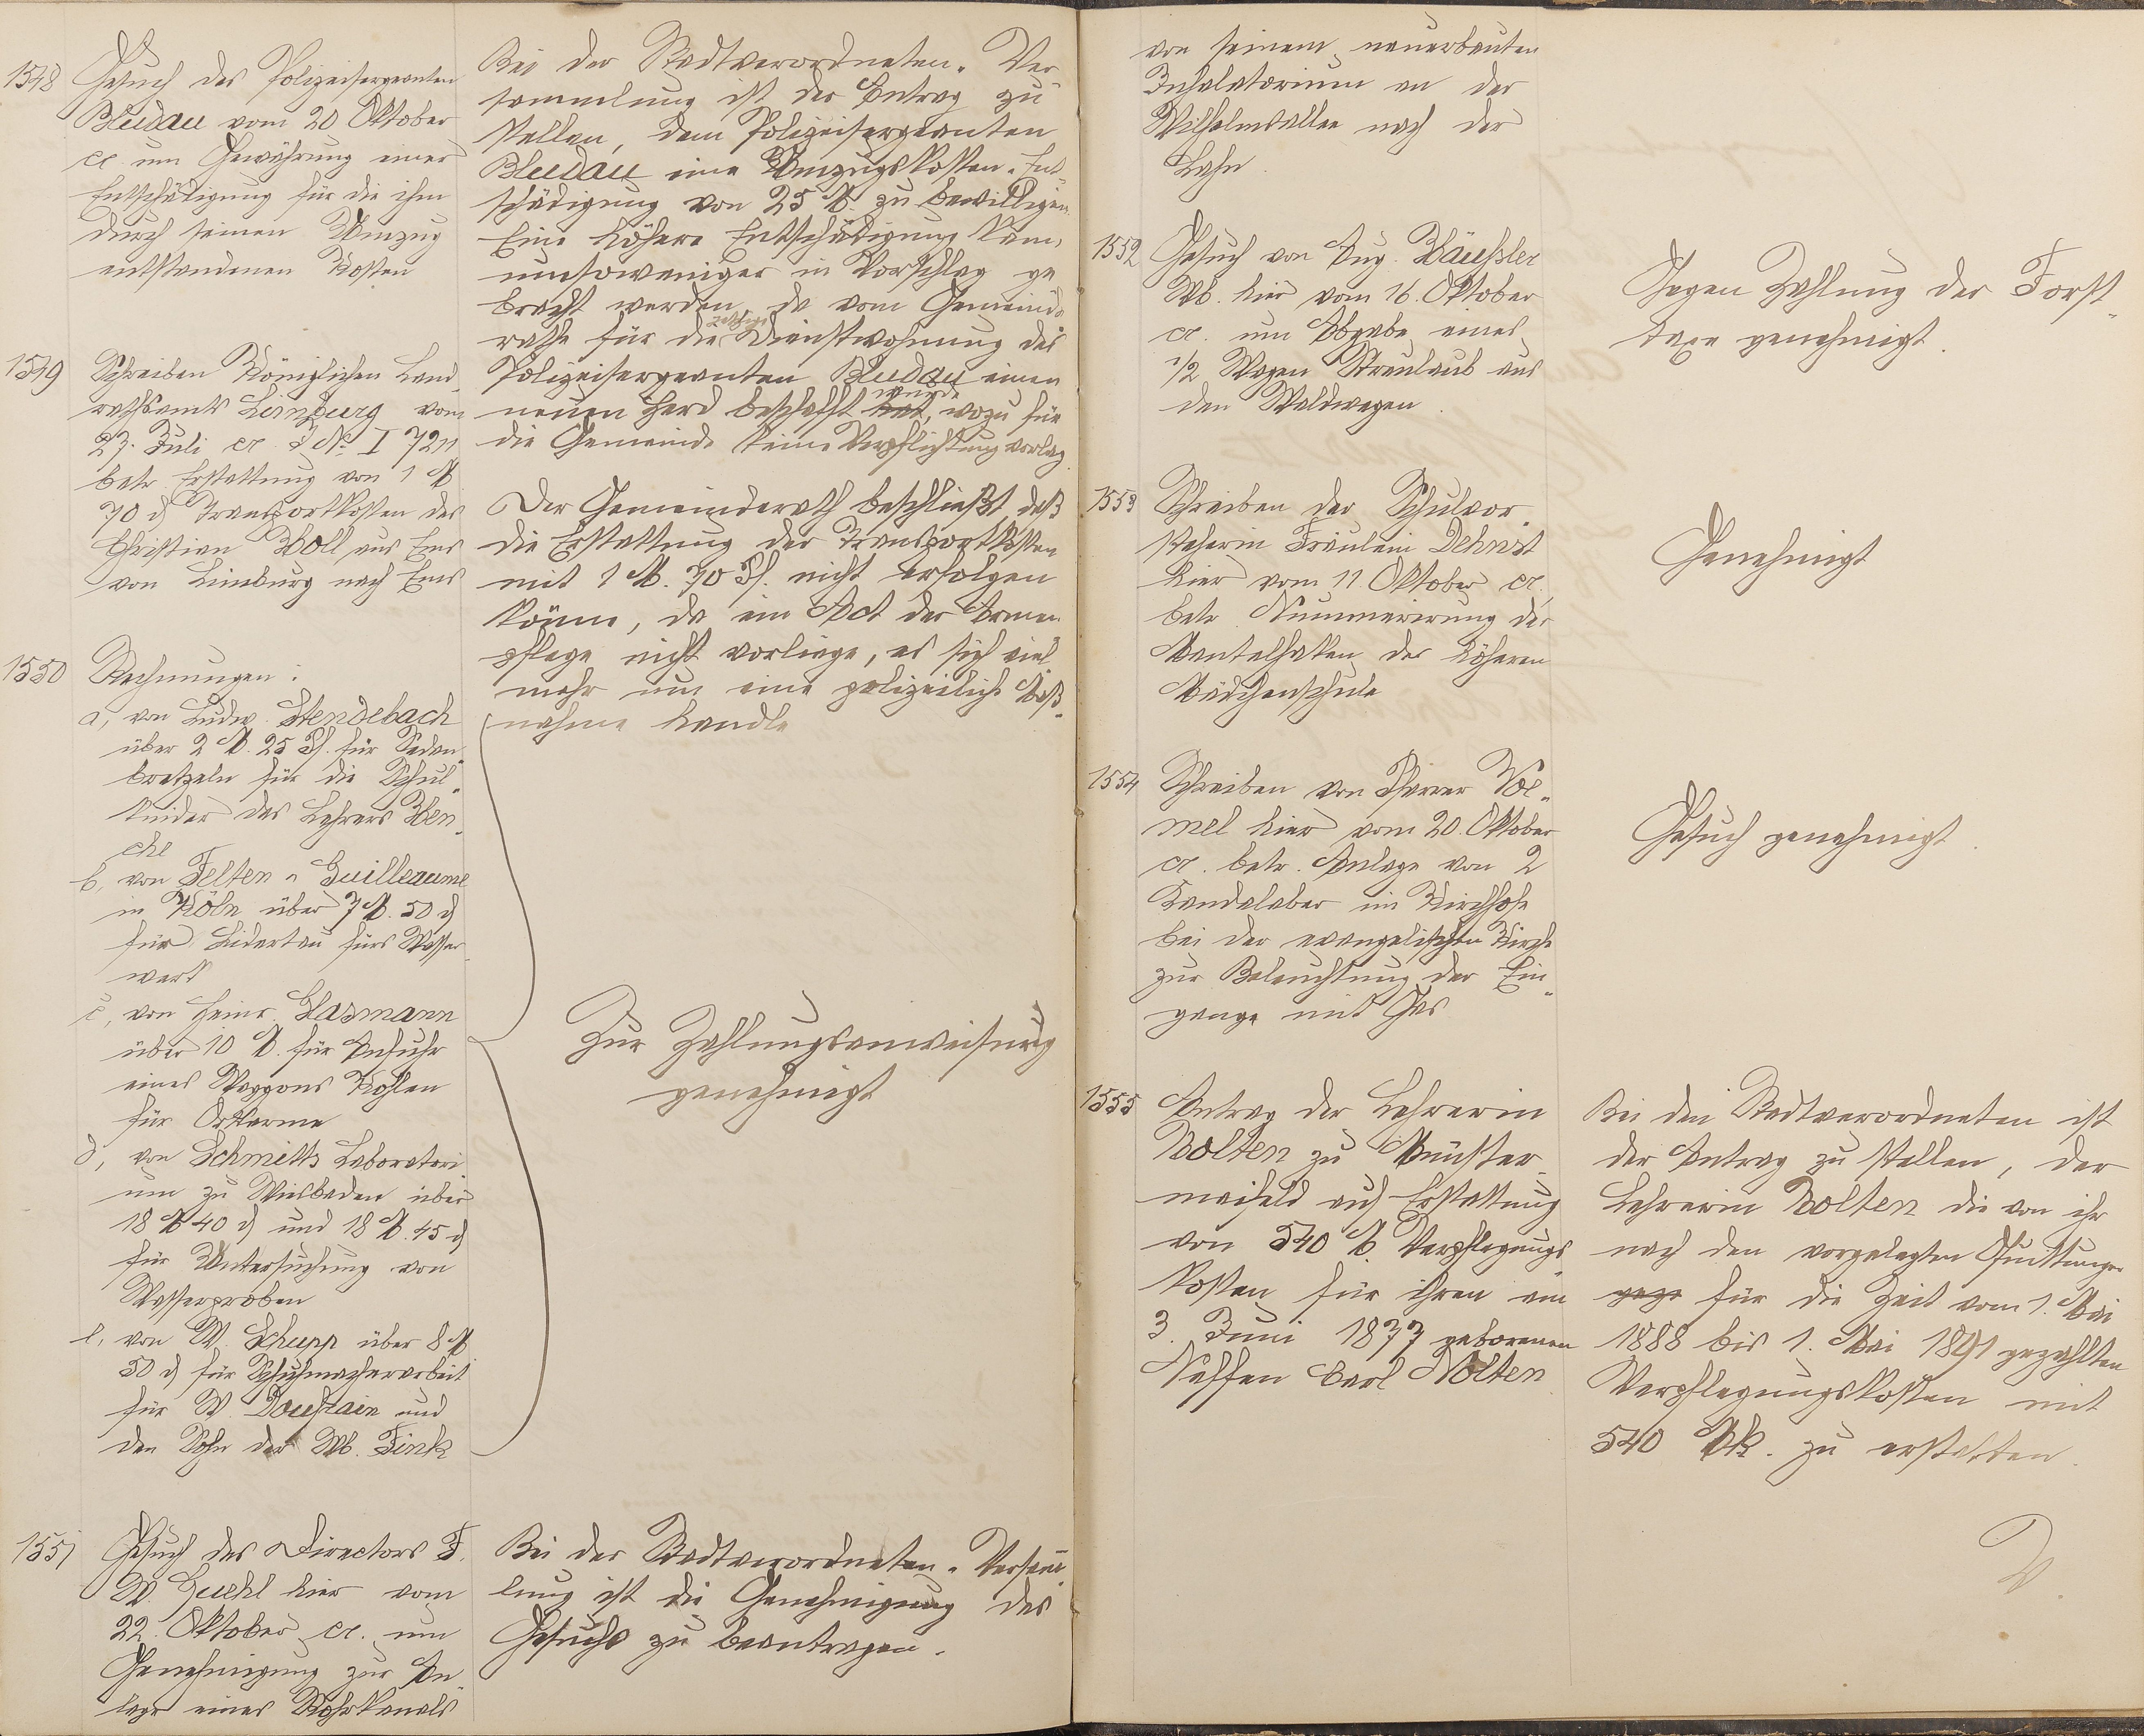 1548 Gesuch des Polizeisergeanten
Bludau vom 20 Oktober
cr. um Gewährung einer
Entschädigung für die ihm
durch seinen Umzug
entstandenen Kosten
Bei der Stadtverordneten-Ver-
sammlung ist der Antrag zu
stellen, dem Polizeisergeanten
Bludau eine Umzugskosten-Ent-
schädigung von 25 M. zu bewilligen.
Eine höhere Entschädigung kann
umsoweniger in Vorschlag ge
bracht werden, da vom Gemeinde
rathe für die Dienstwohnung des
Polizeisergeanten Bludau einen
neuen Herd beschafft hat wurde, wozu für
die Gemeinde keine Verpflichtung vorlag.
1549 Schreiben Königlichen Land
rathsamts Limburg vom
27. Juli cr. J No I 7211
betr. Erstattung von 1 M
70 d Transportkosten des
Christian Boll aus Ems
von Limburg nach Ems
Der Gemeinderath beschließt daß
die Erstattung der Transportkosten
mit 1 M. 70 Pf. nicht erfolgen
könne, da ein Act der Armen
pflege nicht vorliege, es sich viel
mehr um eine polizeiliche Maß-
nahme handle
1550 Rechnungen:
a, von Ludw. Stendebach
über 2 M. 25 Pf. für Sedan
bretzeln für die Schul-
kinder des Lehrers Hen-
chl
b, von Felten u Guilleaume
in Köln über 7 M. 50 d
für Lidertau fürs Wasser
werk
c, von Heinr. Glasmann
über 10 M. für Anfuhr
eines Waggons Kohlen
für Ortsarme
d, von Schmitts Laboratori
um zu Wiesbaden über
18 M 40 d und 18 M. 45 d
für Untersuchung von
Wasserproben
e, von W. Schupp über 8 M
50 d für Schuhmacherarbeit
für W. Douffrain und
den Sohn der Wb. Fink
Zur Zahlungsanweisung
genehmigt
1551 Gesuch des Directors F.
W. Guckl hier vom
22. Oktober cr. um
Genehmigung zur An-
lage eines Rohrkanals
Bei der Stadtverordneten-Versam̅
lung ist die Genehmigung des
Gesuchs zu beantragen.
von seinem neuerbauten
Inhalatorium an der
Wilhelmsallee nach der
Lahn.
1552 Gesuch von Aug. Häußler
Wb. hier vom 16. Oktober
cr. um Abgabe eines
1/2 Wagen Streulaub aus
den Waldwegen.
Gegen Zahlung der Forst-
taxe genehmigt.
1553 Schreiben der Schulvor-
steherin Fräulein Dehnst
hier vom 11. Oktober cr.,
betr. Nummerirung der
Mantelhaken der höheren
Mädchenschule
Genehmigt
1554 Schreiben von Pfarrer Vö-
mel hier vom 20. Oktober
cr. betr. Anlage von 2
Kandelaber im Kirchhofe
bei der evangelischen Kirche
zur Beleuchtung der Ein-
gange mit Gas
Gesuch genehmigt.
1555 Antrag der Lehrerin
Nolten zu Münster-
maifeld auf Erstattung
von 540 M. Verpflegungs
kosten für ihren am
3. Juni 1877 geborenen
Neffen Carl Nolten
Bei den Stadtverordneten ist
der Antrag zu stellen, der
Lehrerin Nolten die von ihr
nach den vorgelegten Quittungen
geze für die Zeit vom 1. Mai
1888 bis 1. Mai 1891 gezahlten
Verpflegungskosten mit
540 Mk. zu erstatten.
V.